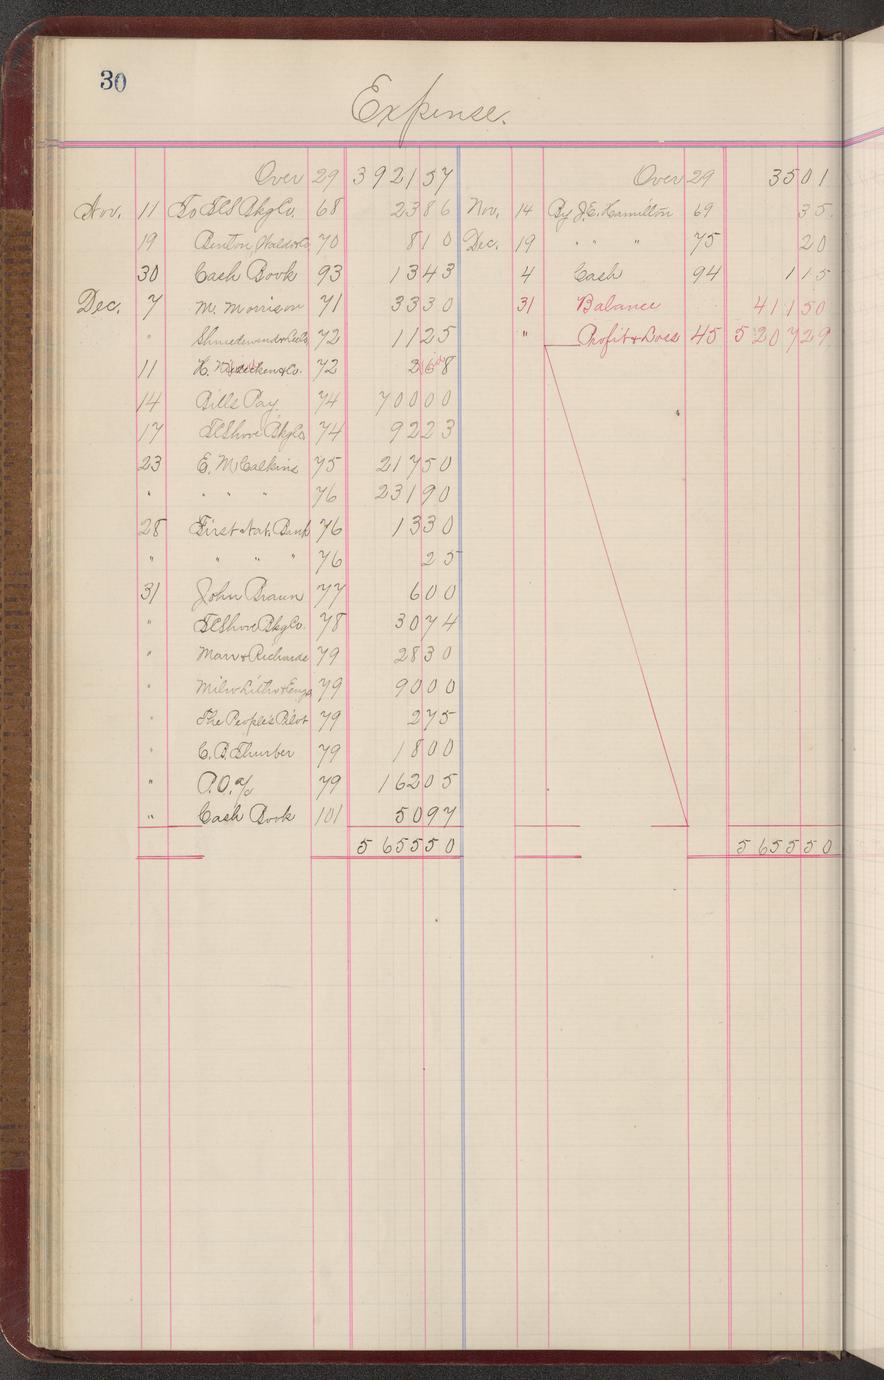 30
Expense.
Over 29 3921 57
Nov. 11 To TCS Bkg Co. 68 23 86
19 Benton, Waldo & Co 70 8 10
30 Cash Book 93 13 43
Dec. 7 M. Morrison 71 33 30
" 72 11 25
11 H. & Co. 72
14 Bills Pay. 74 700 00
17 TC Shove Bkg Co 74 92 23
23 E. M. Calkins 75 217 50
" " " " 76 231 90
28 First Nat. Bank 76 13 30
" " " " 76 25
31 John Braun 77 6 00
" TC Shove Bkg Co. 78 30 74
" Marr & Richards 79 28 30
" Milw Litho & Engr 79 90 00
" The People's Pilot 79 2 75
" C. B. Thurber 79 18 00
" P.O. a/c 79 162 05
" Cash Book 101 50 97
5655 50
Over 29 35 01
Nov. 14 By J. E. Hamilton 69 35
Dec. 19 " " " 75 20
4 Cash 94 1 15
31 Balance 411 50
" Profit & Loss 45 5207 29
5655 50